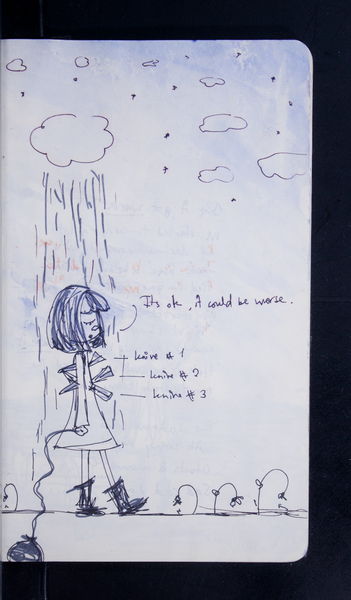 Its ok, it could be worse.
knive # 1
knive # 2
knive # 3